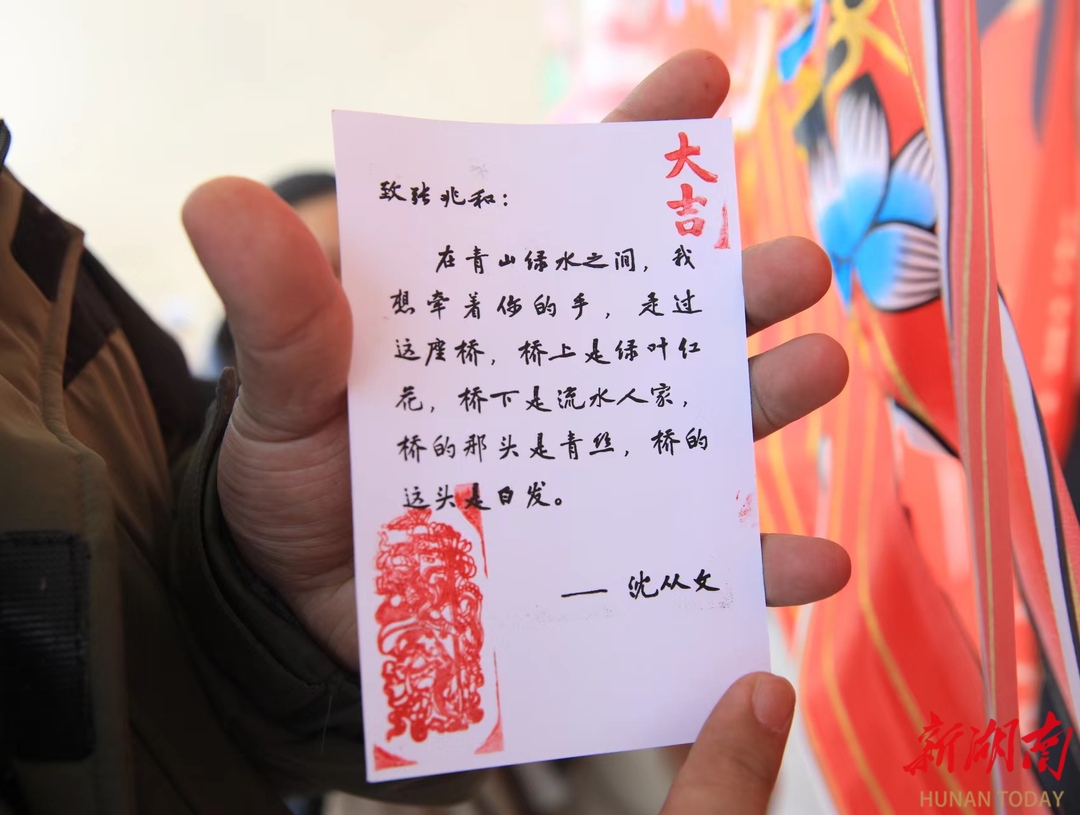 大吉
致张兆和：
在青山绿水之间，我
想牵着你的手，走过
这座桥，桥上是绿叶红
花，桥下是流水人家，
桥的那头是青丝，桥的
这头是白发。
—— 沈从文
新湖南
HUNAN TODAY